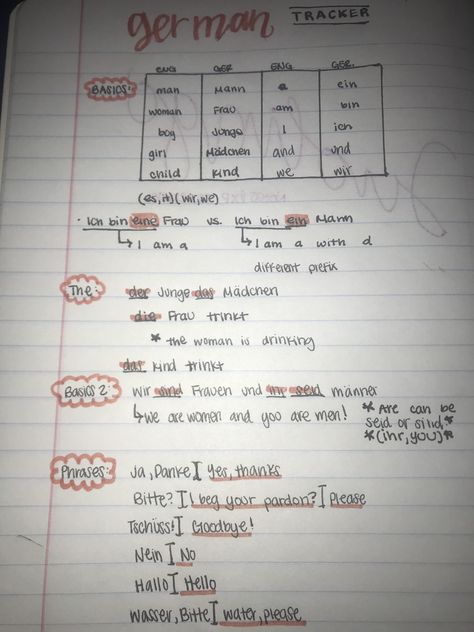 german TRACKER
ENG GER ENG GER.
BASICS: man Mann a ein
woman Frau am bin
boy Junge I ich
girl Mädchen and und
child Kind we wir
(es,it)(wir,we)
· Ich bin eine Frau vs. Ich bin ein Mann
I am a I am a with a
different prefix
The: der Junge das Mädchen
die Frau trinkt
* the woman is drinking
das Kind trinkt
Basics 2: Wir sind Frauen und ihr seid männer
we are women and you are men! * Are can be
seid or sind *
* (ihr,you) *
Phrases: Ja, Danke I Yes, thanks
Bitte? I I beg your pardon? I Please
Tschüss! I Goodbye!
Nein I No
Hallo I Hello
Wasser, Bitte I water, please